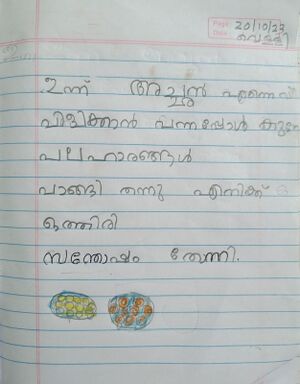 Page: 20/10/23
Date: വെള്ളി
ഇന്ന് അച്ഛൻ എന്നെ വി
വിളിക്കാൻ വന്നപ്പോൾ കുറെ
പലഹാരങ്ങൾ
വാങ്ങി തന്നു എനിക്ക്
ഒത്തിരി
സന്തോഷം തോന്നി.